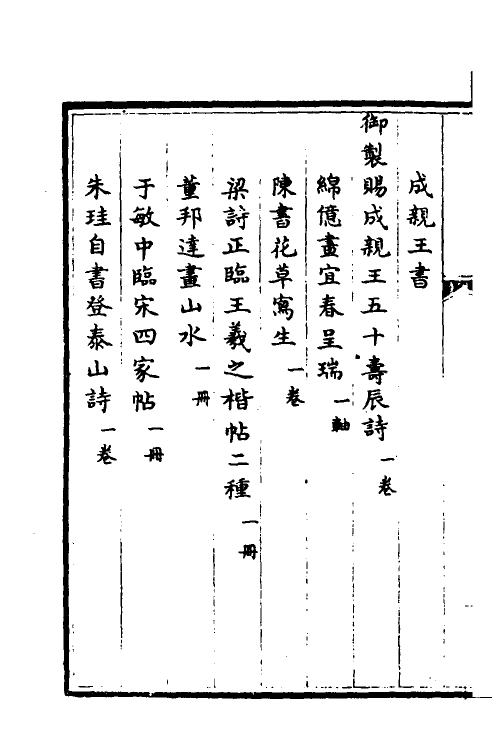 成親王書
御製賜成親王五十壽辰詩一卷
綿億畫宜春呈瑞一軸
陳書花草寫生一卷
梁詩正臨王羲之楷帖二種一冊
董邦達畫山水一冊
于敏中臨宋四家帖一冊
朱珪自書登泰山詩一卷